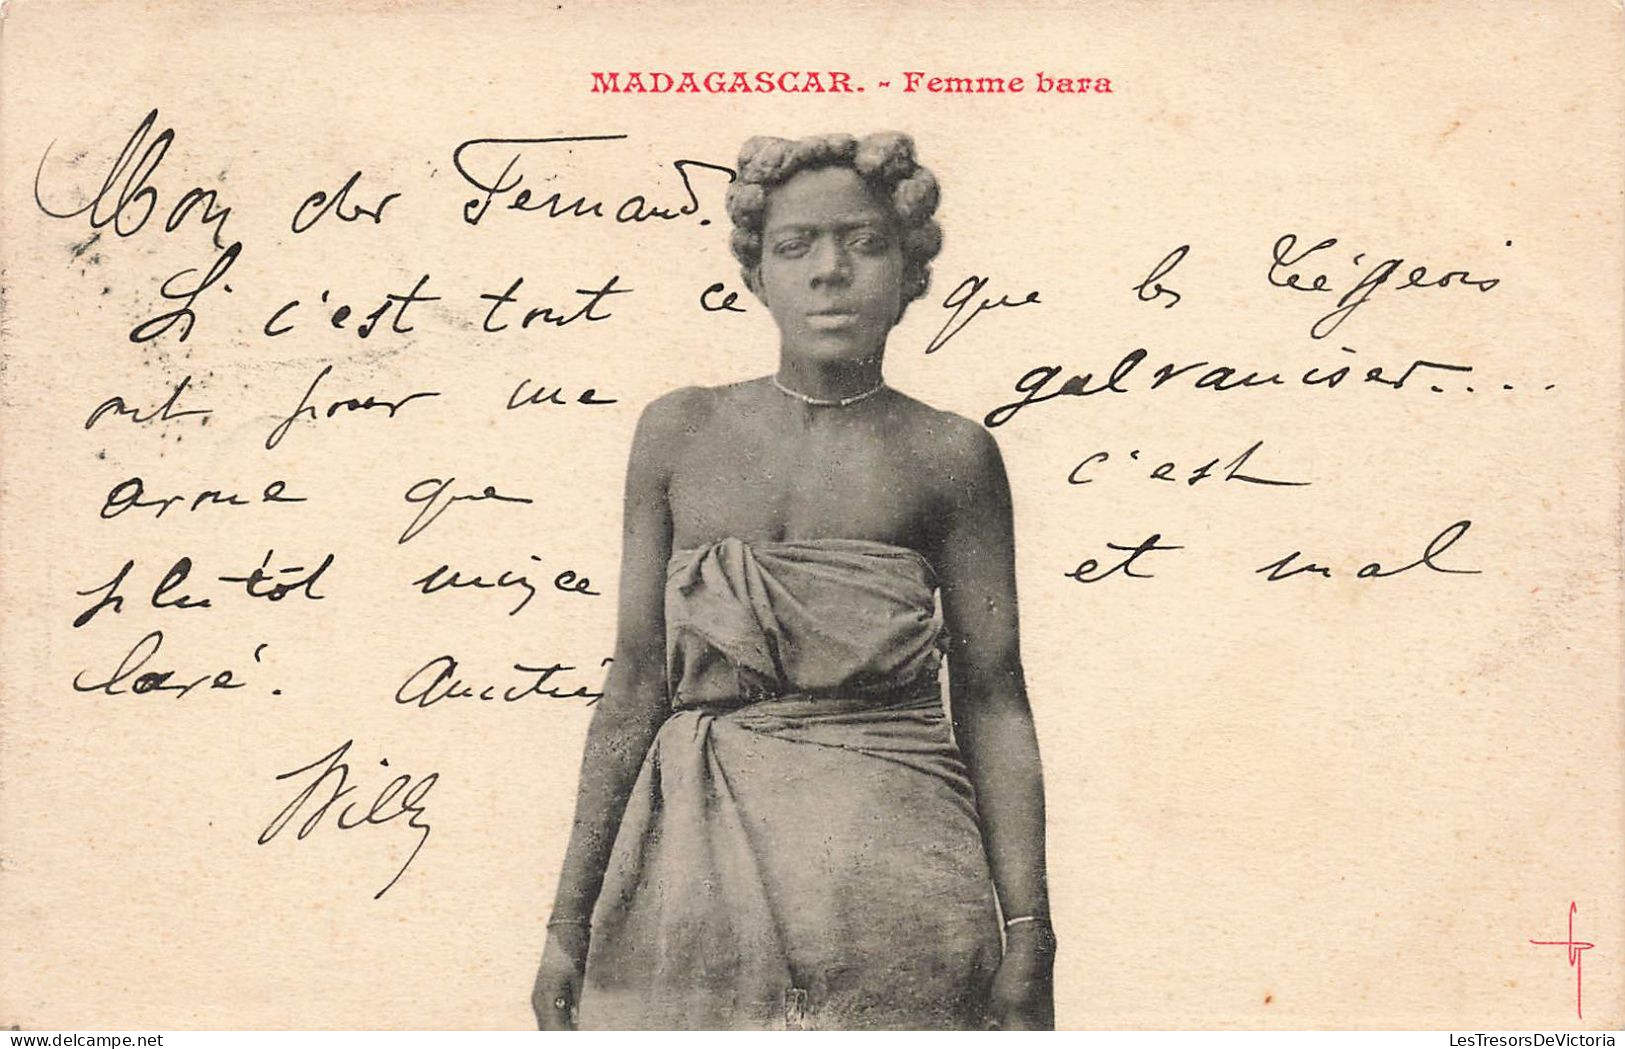 MADAGASCAR. - Femme bara
Mon cher Fernand.
Si c'est tout ce que les Liégeois
ont pour me galvaniser....
que c'est
plutôt mince et mal
lavé. Amitiés
Willy
LesTresorsDeVictoria